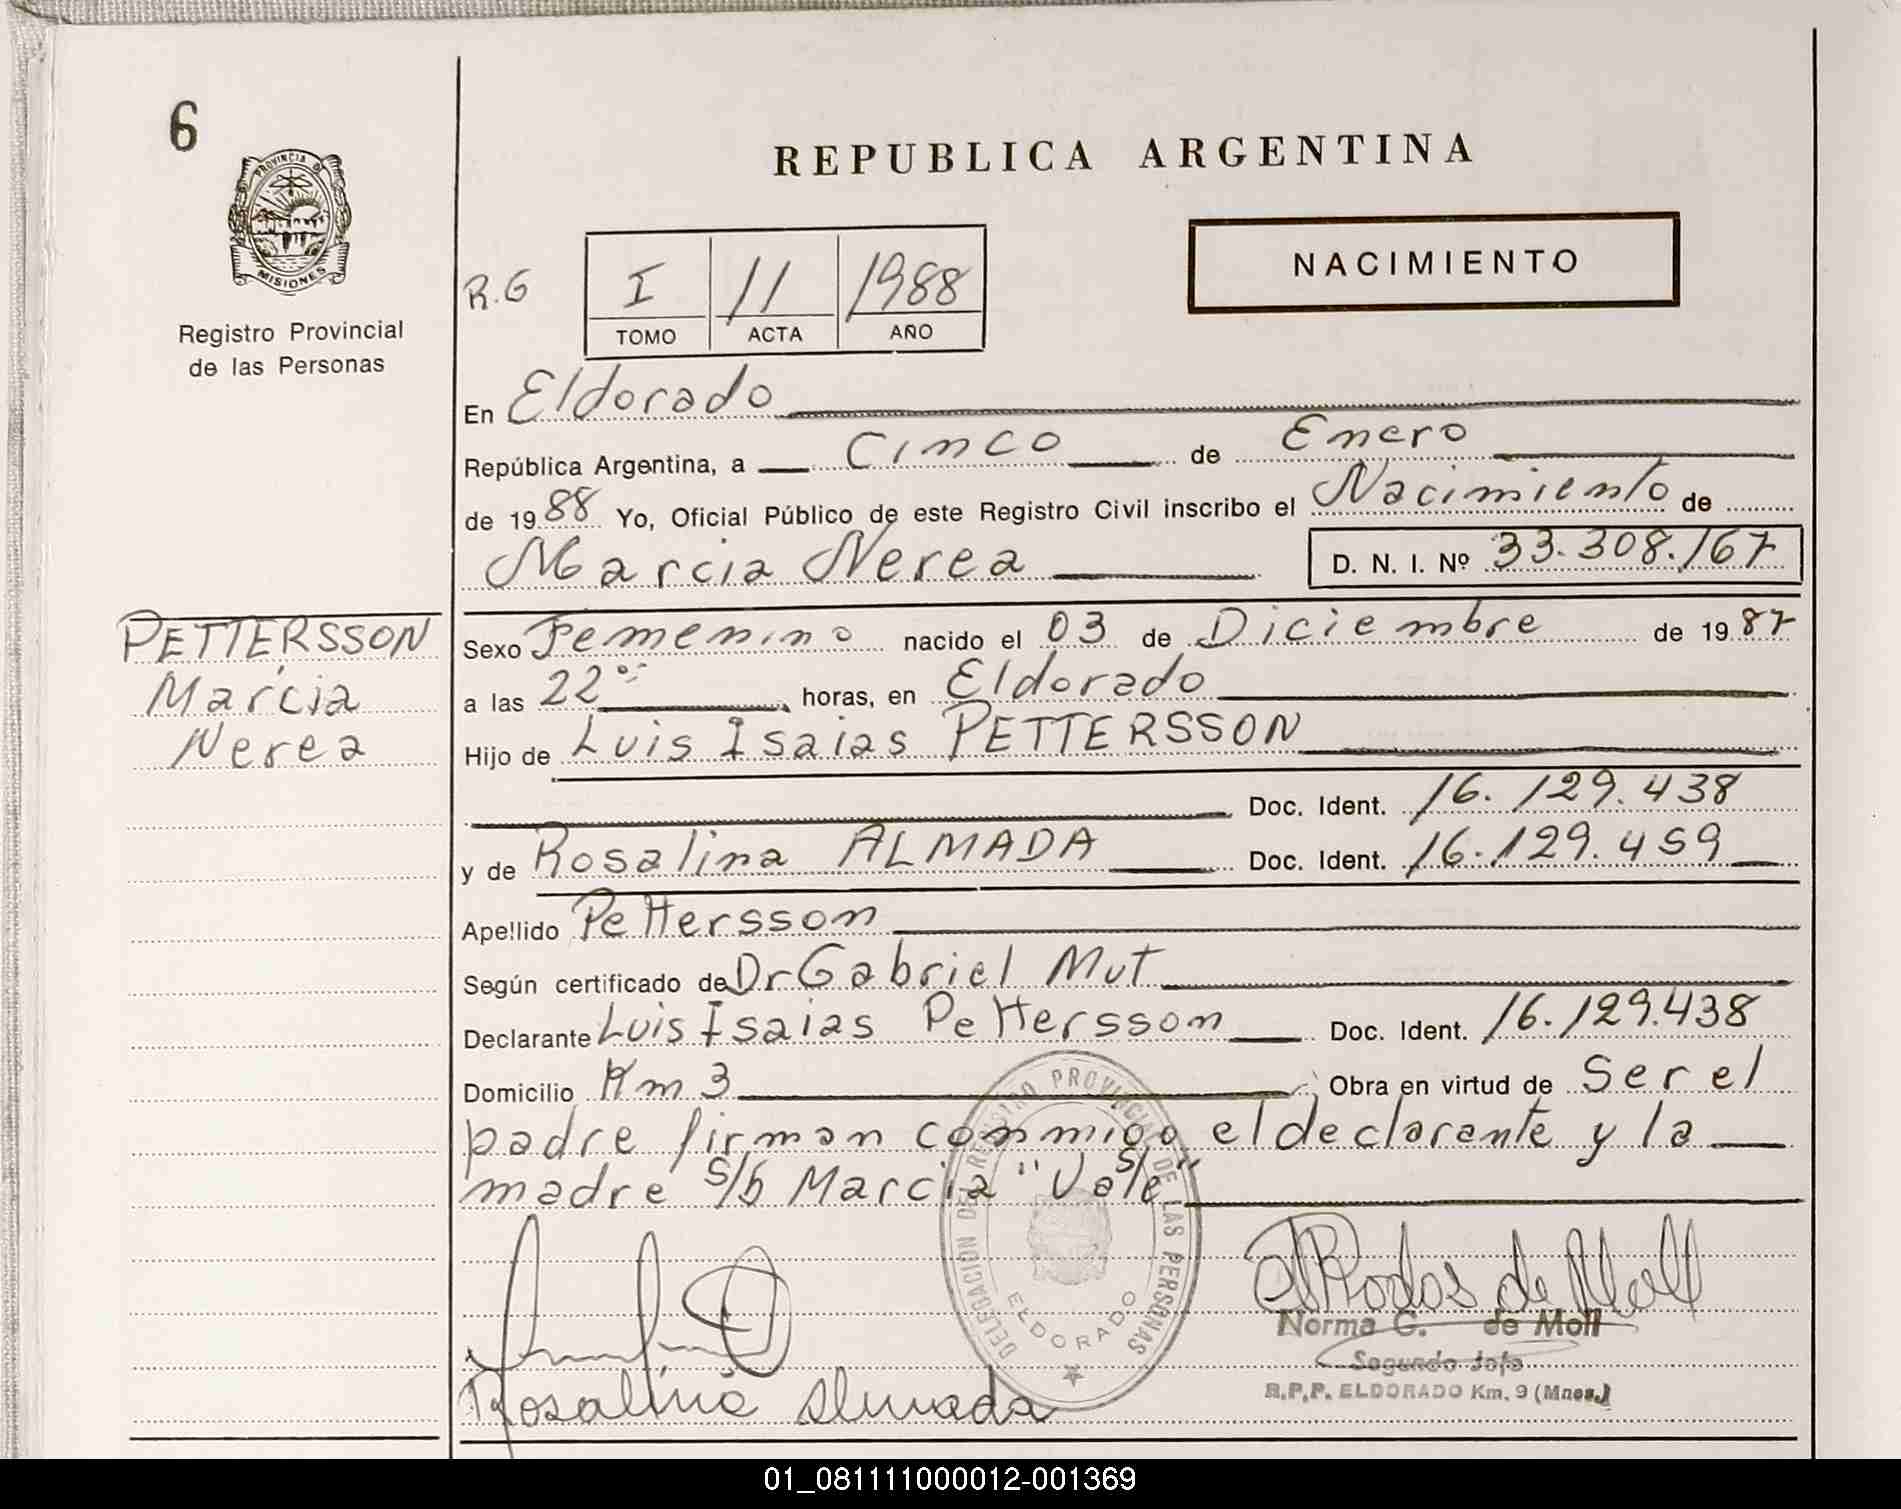 6
PROVINCIA DE
MISIONES
Registro Provincial
de las Personas
REPUBLICA ARGENTINA
NACIMIENTO
R.G
I 11 1988
TOMO ACTA AÑO
En Eldorado
República Argentina, a Cinco de Enero
de 1988 Yo, Oficial Público de este Registro Civil inscribo el Nacimiento de
Marcia Nerea D. N. I. Nº 33.308.167
PETTERSSON
Marcia
Nerea
Sexo Femenino nacido el 03 de Diciembre de 1987
a las 22 horas, en Eldorado
Hijo de Luis Isaias PETTERSSON
Doc. Ident. 16.129.438
y de Rosalina ALMADA Doc. Ident. 16.129.459
Apellido Pettersson
Según certificado de Dr Gabriel Mut
Declarante Luis Isaias Pettersson Doc. Ident. 16.129.438
Domicilio Km 3 Obra en virtud de Ser el
padre firman conmigo el declarante y la
madre s/b Marcia "Vale"
DELEGACION DEL REGISTRO PROVINCIAL DE LAS PERSONAS
ELDORADO
Rodas de Moll
Norma C. de Moll
Segundo Jefe
R.P.P. ELDORADO Km. 9 (Mnes.)
Rosalina Almada
01_081111000012-001369